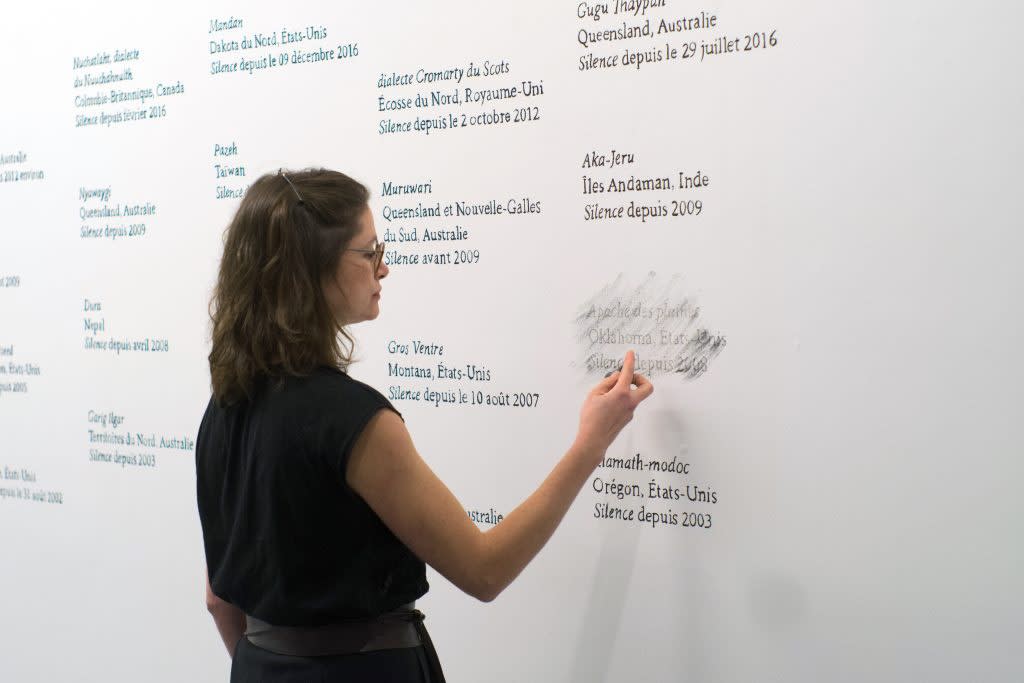 Australie
2012 environ
2009
États-Unis
2005
États Unis
depuis le 31 août 2002
Nuchatlaht, dialecte
du Nuuchahnulth
Colombie-Britannique, Canada
Silence depuis février 2016
Nyawaygi
Queensland, Australie
Silence depuis 2009
Dura
Nepal
Silence depuis avril 2008
Garig Ilgar
Territoires du Nord, Australie
Silence depuis 2003
Mandan
Dakota du Nord, États-Unis
Silence depuis le 09 décembre 2016
Pazeh
Taïwan
Silence
dialecte Cromarty du Scots
Écosse du Nord, Royaume-Uni
Silence depuis le 2 octobre 2012
Muruwari
Queensland et Nouvelle-Galles
du Sud, Australie
Silence avant 2009
Gros Ventre
Montana, États-Unis
Silence depuis le 10 août 2007
australie
Gugu Thaypan
Queensland, Australie
Silence depuis le 29 juillet 2016
Aka-Jeru
Îles Andaman, Inde
Silence depuis 2009
Apache des plaines
Oklahoma, États-Unis
Silence depuis 2008
Klamath-modoc
Orégon, États-Unis
Silence depuis 2003